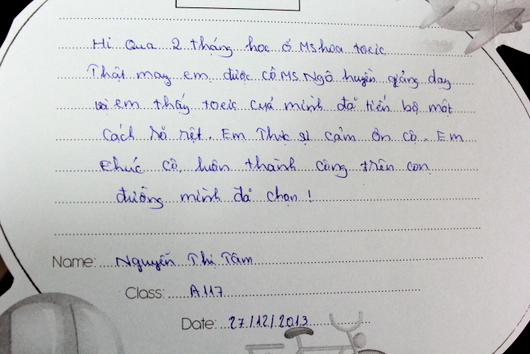 Hi Qua 2 tháng học ở Mshoa toeic
Thật may em được cô MS. Ngô huyền giảng dạy
và em thấy toeic của mình đã tiến bộ một
cách rõ rệt. Em Thực sự cảm ơn cô. Em
chúc cô luôn thành công trên con
đường mình đã chọn!
Name: Nguyễn Thị Tâm
Class: A117
Date: 27/12/2013